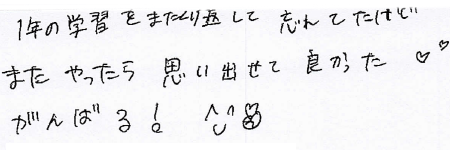 1年の学習をまたくり返して 忘れてたけど
またやったら 思い出せて 良かった♡♡
がんばる!